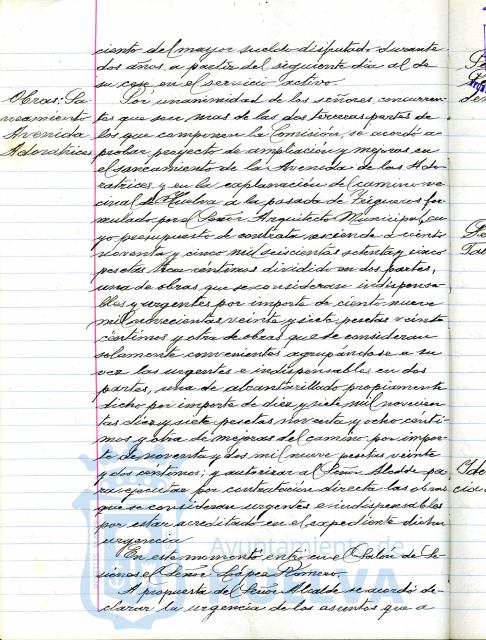 ciento del mayor sueldo disfrutado durante
dos años, a partir del siguiente dia al de
su cese en el servicio activo.
Obras: Sa-
neamiento
Avenida
Adoratrices
Por unanimidad de los señores concurren-
tes que son mas de las dos terceras partes de
los que componen la Comisión, se acordó a-
probar proyecto de ampliación y mejoras en
el saneamiento de la Avenida de las Ado-
ratrices y en la explanación del camino ve-
cinal de Huelva a la posada de Pegueros for-
mulado por el Señor Arquitecto Municipal, cu-
yo presupuesto de contrata asciende a ciento
noventa y cinco mil seiscientas setenta y cinco
pesetas tres centimos dividido en dos partes,
una de obras que se consideran indispensa-
bles y urgentes por importe de ciento nueve
mil novecientas veinte y siete pesetas veinte
céntimos y otra de obras que se consideran
solamente convenientes agrupándose a su
vez las urgentes e indispensables en dos
partes, una de alcantarillado propiamente
dicho por importe de diez y siete mil novecien-
tas diez y siete pesetas noventa y ocho cénti-
mos y otra de mejoras del camino por impor-
te de noventa y dos mil nueve pesetas veinte
y dos céntimos; y autorizar al Señor Alcalde pa-
ra ejecutar por contratación directa las obras
que se consideran urgentes e indispensables
por estar acreditada en el expediente dicha
urgencia.
En este momento entró en el Salón de Se-
siones el Señor López Romero.
A propuesta del Señor Alcalde se acordó de-
clarar la urgencia de los asuntos que a
Ayuntamiento de
HUELVA